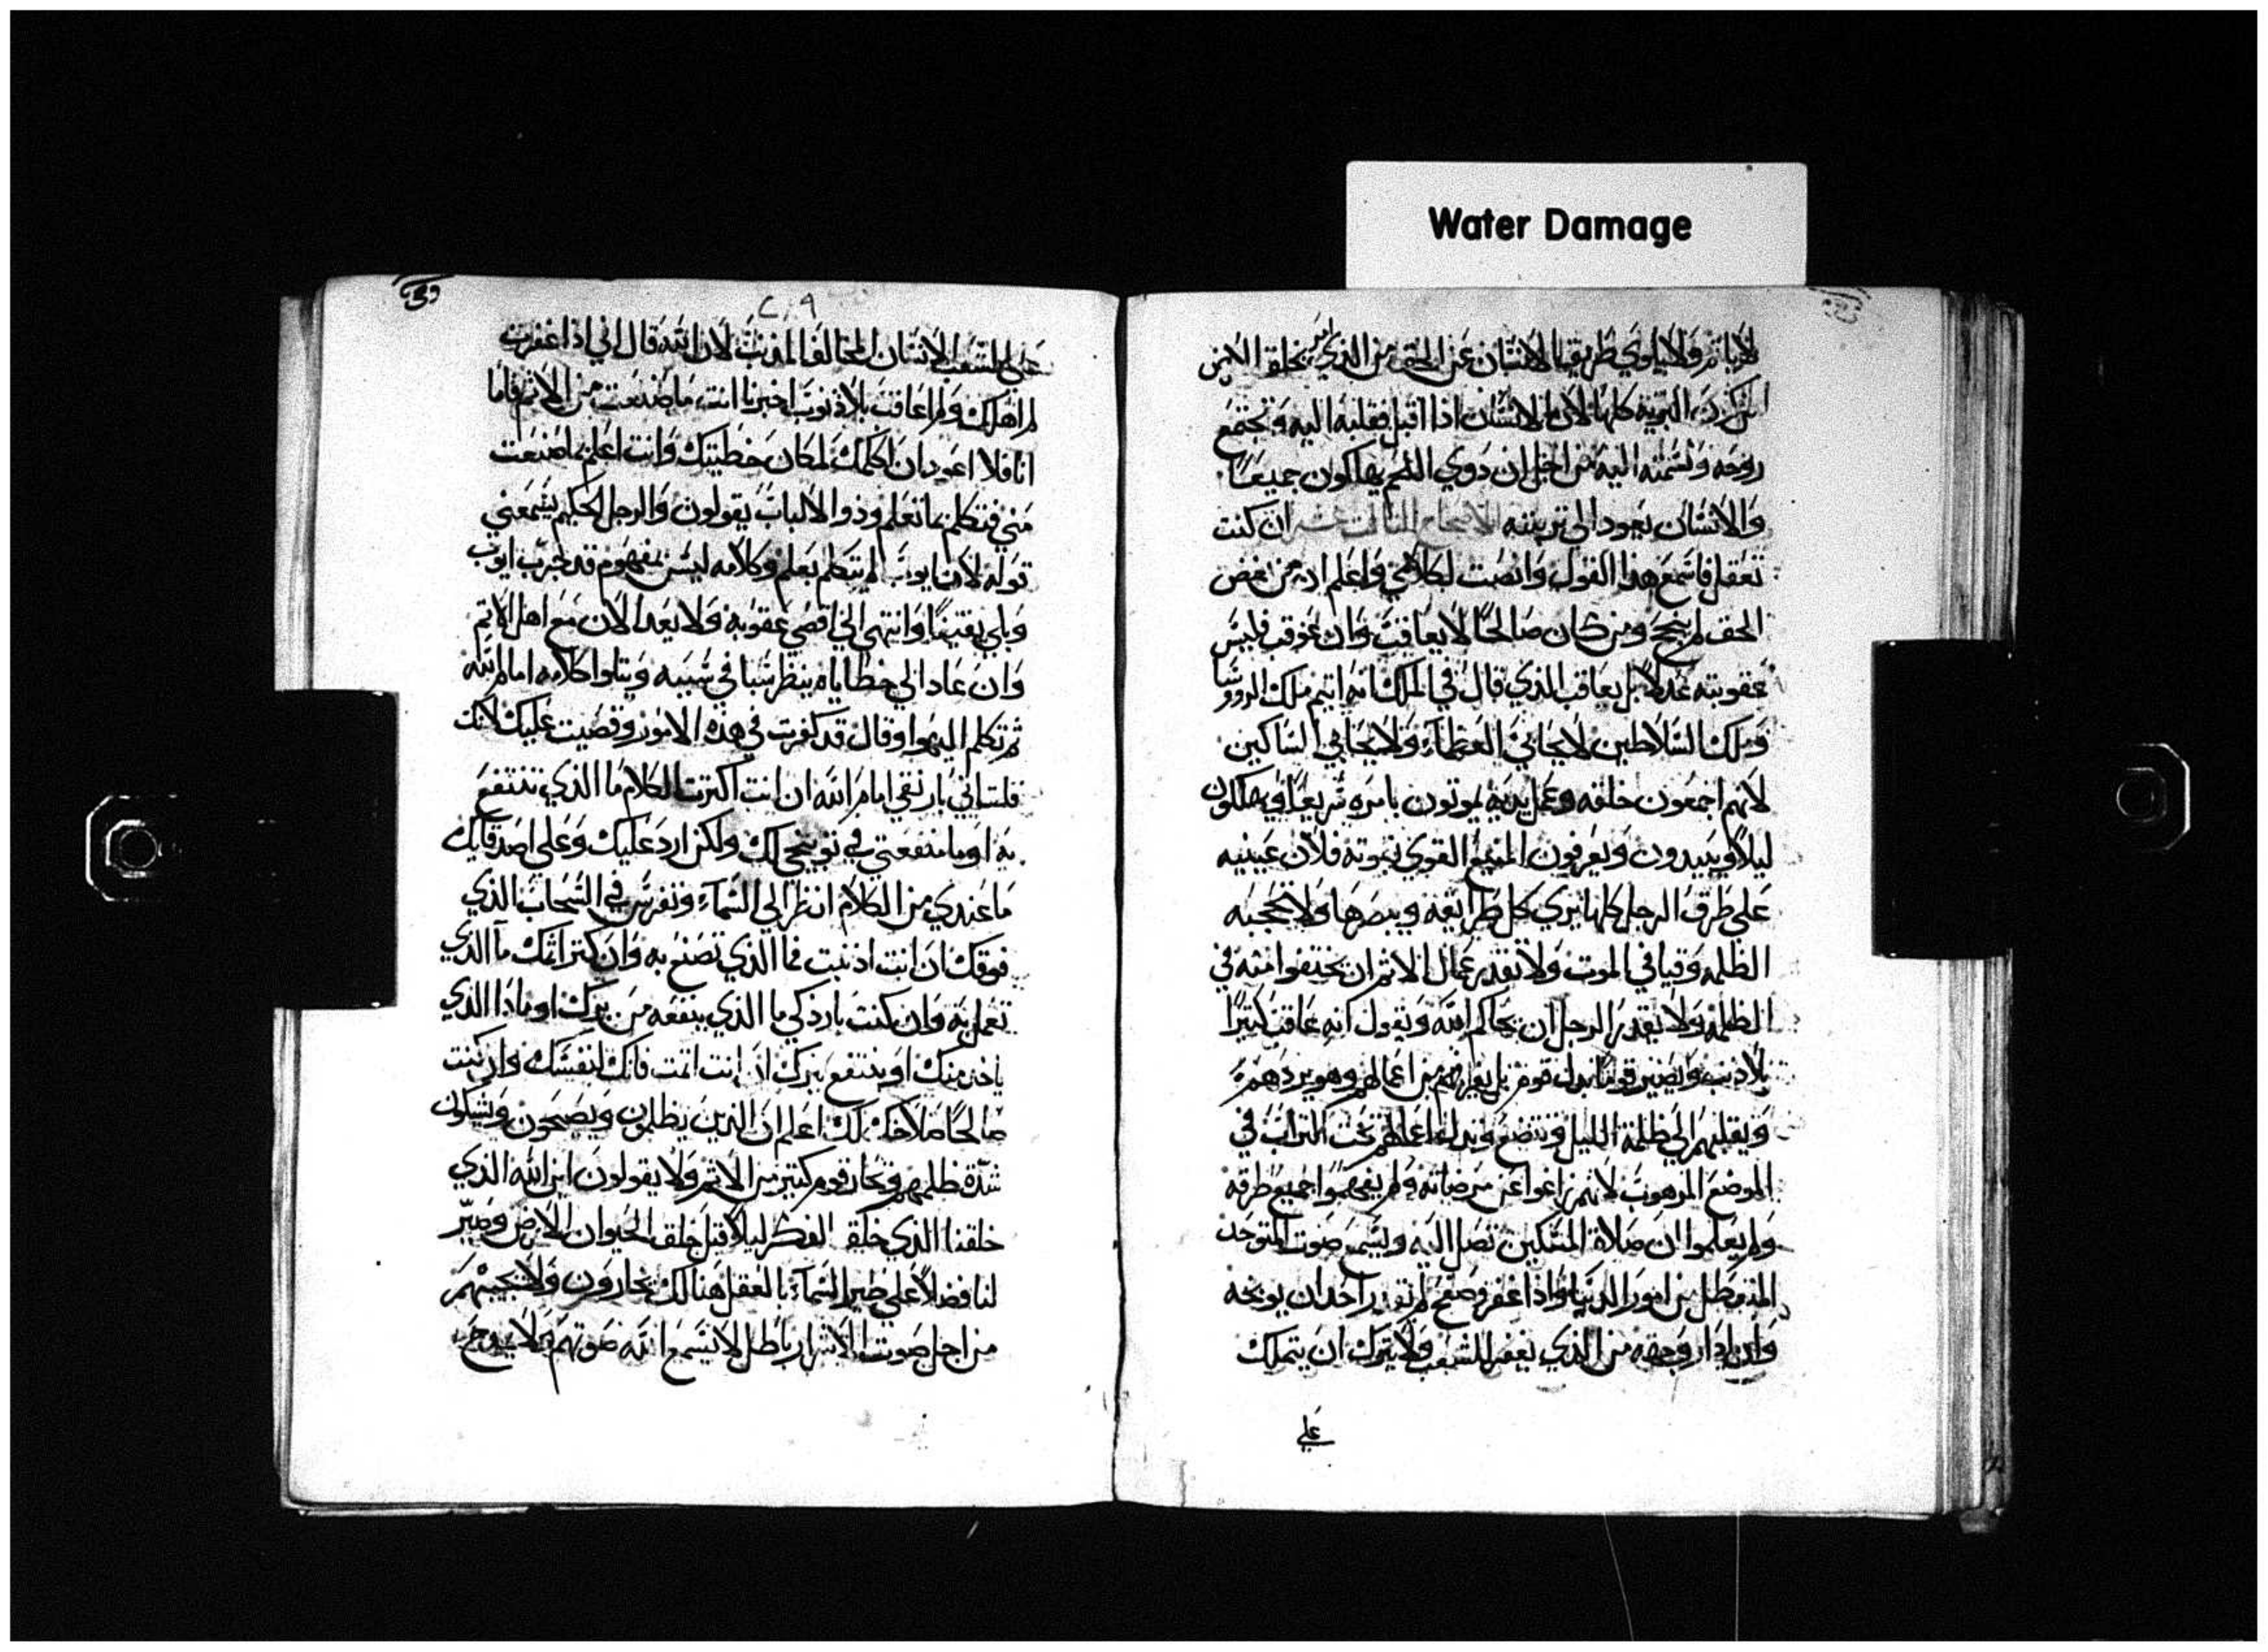 Water Damage
لا ياثم ولا يلوي طريق الانسان عن الحق من الذي امر بخلق الارض
البريه كلها لان الانسان اذا اقبل فقلبه اليه وتجتمع
روحه ونسمته اليه من اجل ان ذوي اللحم يهلكون جميعًا
والانسان يعود الى تربته الاصحاح الثالث عشر ان كنت
تعقل فاسمع هذا القول وانصت لكلامي واعلم انه من بغض
الحق لم ينج ومن كان صالحًا لا يعاقب وان عوقب فليس
عقوبته عدلاً بل يعاقب الذي قال في الملك انه اثيم ملك الرووسا
وملك السلاطين لا يحابي العظماء ولا يحابي المساكين
لانهم اجمعون خلقه وعمل يديه يموتون بامره سريعًا ويهلكون
ليلاً ويبيدون ويعرفون المنيع القوي بموته فلان عينيه
على طرق الرجل كلها يري كل طرايقه ويبصرها ولا تحجبه
الظلمه وفيافي الموت ولا تقدر عمال الاثم ان يختفوا منه في
الظلمه ولا يقدر الرجل ان يحاكم الله ويقول انه عاقب كثيرًا
بلا ذنب ويصير قومًا بدل قوم بل يعرفهم من اعمالهم وهو يردهم
ويقلبهم الى ظلمة الليل ويتضع وتبدل اعمالهم تحت التراب في
الموضع المرهوب لانهم زاغوا عن مرضاته ولم يفهموا جميع طرقه
ولم يعلموا ان صلاة المسكين تصل اليه ويسمع صوت المتوحد
من امور الدنيا واذا غفر وصفح لم تقدر احد ان يوبخه
وان ادار وجهه من الذي يغفر للشعب ولا يترك ان يتملك
على
على الشعب الانسان المخالف المذنب لان الله قال اني اذا غفرت
لم اهلك ولم اعاقب بلا ذنوب اخبرنا انت ما صنعت من الاثم فاما
انا فلا اعود ان اكلمك لمكان خطيتك وانت اعلم بما صنعت
مني فتكلم بما تعلم وذوا الالباب يقولون والرجل الحكيم يسمعني
قوله لان ايوب لم يتكلم بعلم وكلامه ليس بمفهوم قد جرب ايوب
وبلي يقينًا وانتهى الى اقصى عقوبه ولا يعد الان مع اهل الاثم
وان عاد الى خطاياه ينظر شبا في شيبه ويتلوا كلامه امام الله
ثم تكلم اليهوا وقال قد كفرت في هذه الامور وقضيت عليك لانك
قلت اني بار نقي امام الله ان انت اكثرت الكلام ما الذي تنتفع
به او ما منفعتي في توبيخي لك ولكن ارد عليك وعلى اصدقايك
ما عندي من الكلام انظر الى السماء وتفرس في السحاب الذي
فوقك ان انت اذنبت فما الذي تصنع به وان كثر اثمك ما الذي
تعمل به وان كنت بار ذكي ما الذي ينفعه من برك او ماذا الذي
ياخذ منك او ينتفع ببرك ان انت اثمت فانك لنفسك وان كنت
صالحًا صلاحك لك اعلم ان الذين يظلمون ويصيحون ويشكون
شدة ظلمهم ويحار قوم كثير من الاثم ولا يقولون اين الله الذي
خلقنا الذي خلق الفكر ليلاً قبل خلق الحيوان الارض وصير
لنا فضلاً على طير السماء بالعقل هنالك يجارون ولا يجيبهم
من اجل صوت الاشرار باطل لا يسمع الله صوتهم